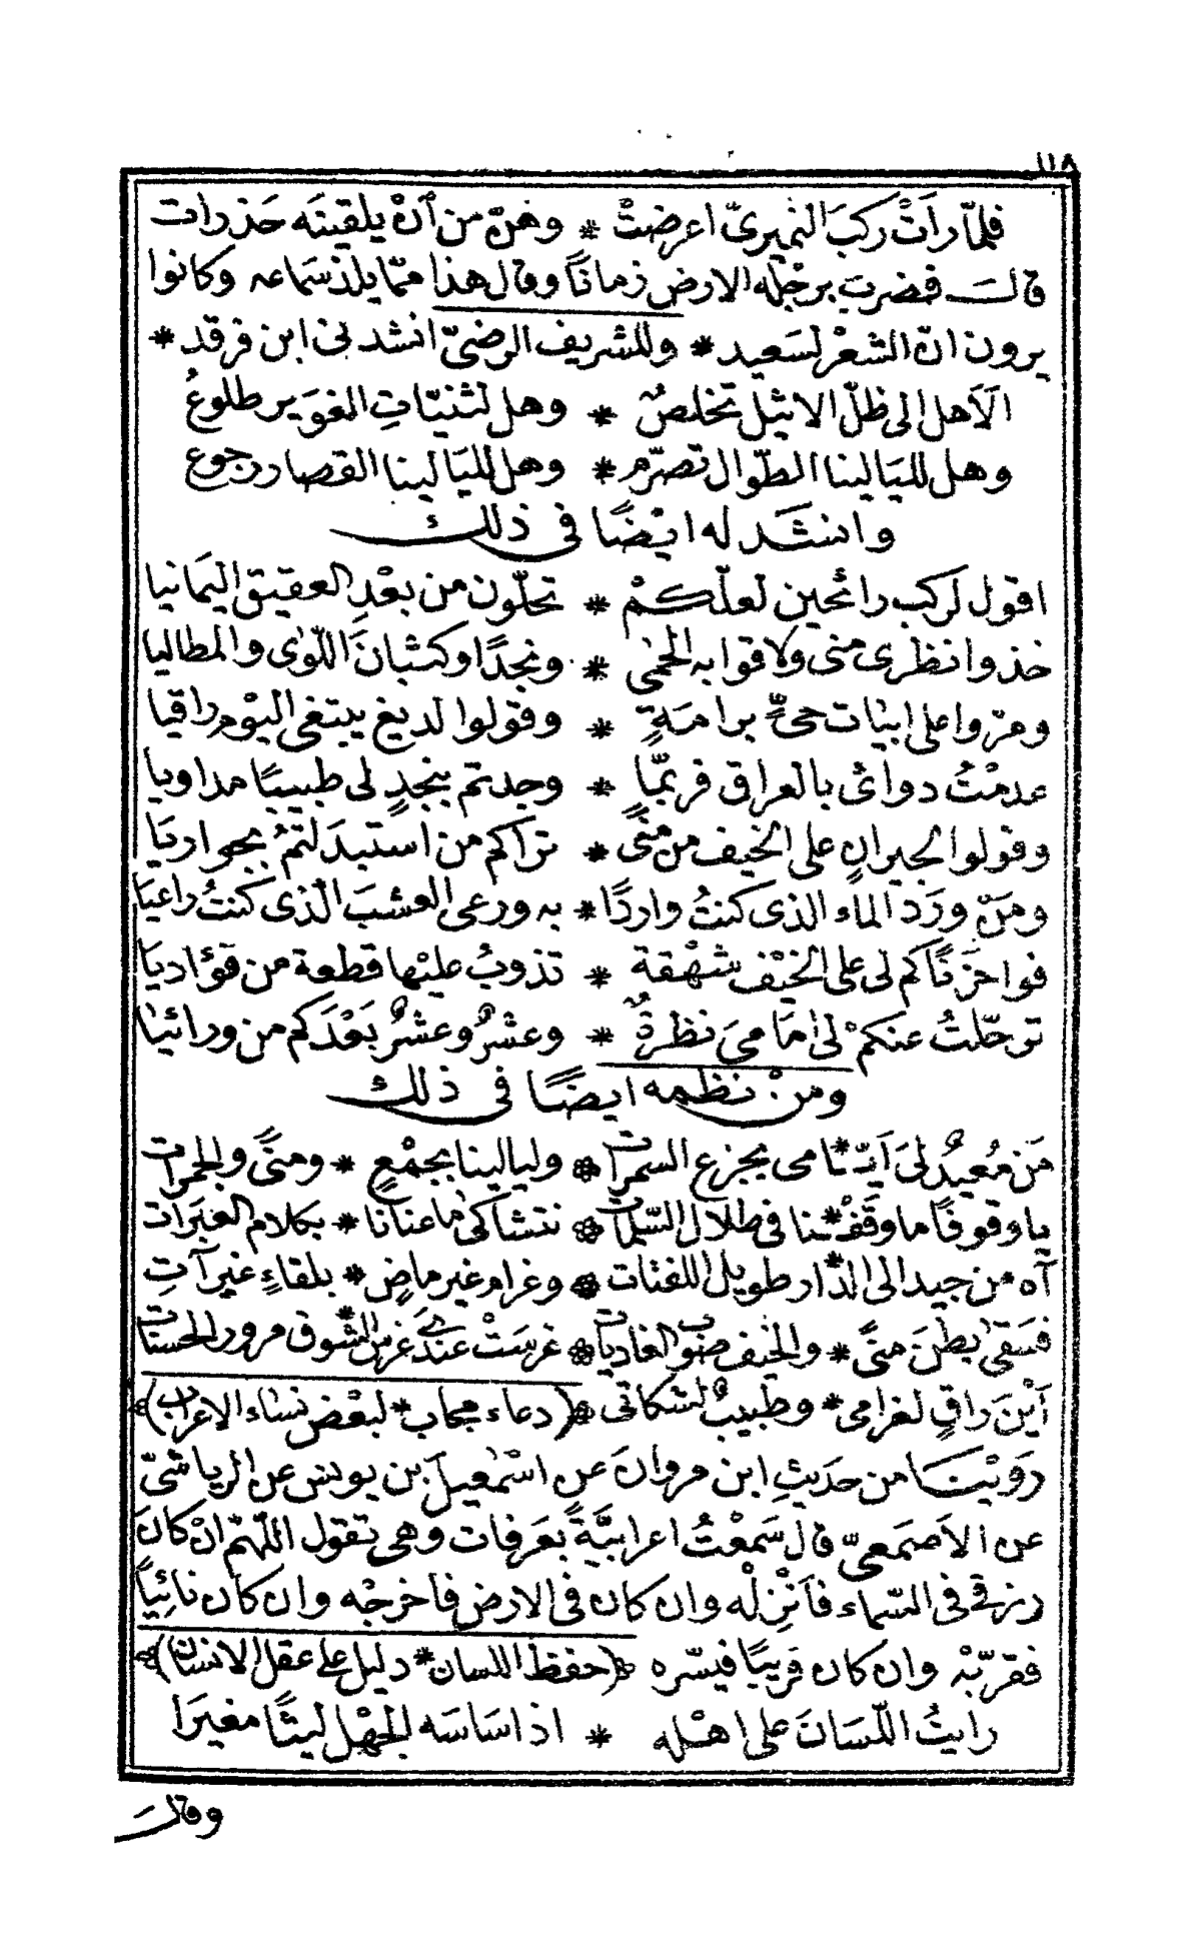 ١١٨
فلمّا رأَتْ ركبَ النميريّ اعرضتْ * وهنّ من اَنْ يلقينَه حَذرات
قالت فضرب برجله الارض زماناً وقال هذا ممّا يلذ سماعه وكانوا
يرون انّ الشعْر لسَعيد * وللشريف الرضىّ انشدنى ابن فرقد *
الَاهل الى ظلّ الاثيل تخلصٌ * وهل لثنيّاتِ الغوَير طلوعُ
وهل لليَالينا الطّوال تصرّم * وهل لليَالينا القصار رجوع
وانشد له ايْضًا فى ذلك
اقول لركب رائحين لعلّكمْ * تحلّون من بعْدِ العقيق اليمَانيا
خذوا نظرى منى ولاقوا به الحمٰى * ونجدًا وكثبانَ اللّوٰى والمطاليا
ومرّوا على ابيات حىٍّ برامَةٍ * وقولوا لديغ يبتغى اليوْم راقيا
عدمْتُ دوائى بالعراق فربمّا * وجدتم بنجدٍ لى طبيبًا مداويا
وقولوا لجيرانٍ على الخيف من منًى * تراكم من استبدَلتمُ بجواريَا
ومَنْ ورَد الماء الذى كنتُ واردًا * به ورعى العشبَ الّذى كنتُ راعيَا
فواحزَناً كم لى على الخيْف شهْقة * تذوبُ عليْها قطعة من فؤاديَا
ترحّلتُ عنكمْ لىٰ امَامىَ نظرةٌ * وعشْرٌ وعشرٌ بَعْدَكم من ورائيَا
ومنْ نظمه ايضًا فى ذلك
مَن مُعيدٌ لىَ اَيّـ * ـامى بجزع السمرات * وليالينا بجمْعٍ * ومنًى والجمرات
يا وقوفًا ما وقَفْـ * ـنا فى ظلال السّلمات * نتشاكى ما عنانا * بكلام العَبَرات
آه من جيد الى الدّ * ار طويل اللفتات * وغرام غير ماضٍ * بلقاءٍ غير آتِ
فسَقى بطْنَ منًى * والخيف صَوبُ الغاديات * غرسَتْ عندىَ غرس * الشّوق مرور الحسنات
اَيْنَ راقٍ لغرامى * وطبيبٌ لشكاتى (دعاء مجاب * لبعْض نساء الاعراب)
روَيْنَا من حَديثِ ابن مروانَ عن اسْمٰعيلَ بن يونس عن الرياشىّ
عن الاَصْمَعىّ قال سَمعْتُ اعرابيَّةً بعَرفات وهى تقول اللّهمّ انْ كانَ
رزقى فى السّماء فاَنْزلْه وان كان فى الارض فاخرجْه وان كان نائِيًا
فقربّهْ وان كان قريبًا فيسّره (حفظ اللسان * دليل على عقل الانسَان)
رايتُ اللّسَانَ على اهْله * اذا سَاسَه الجهْل ليثًا مغيَرا
وقال